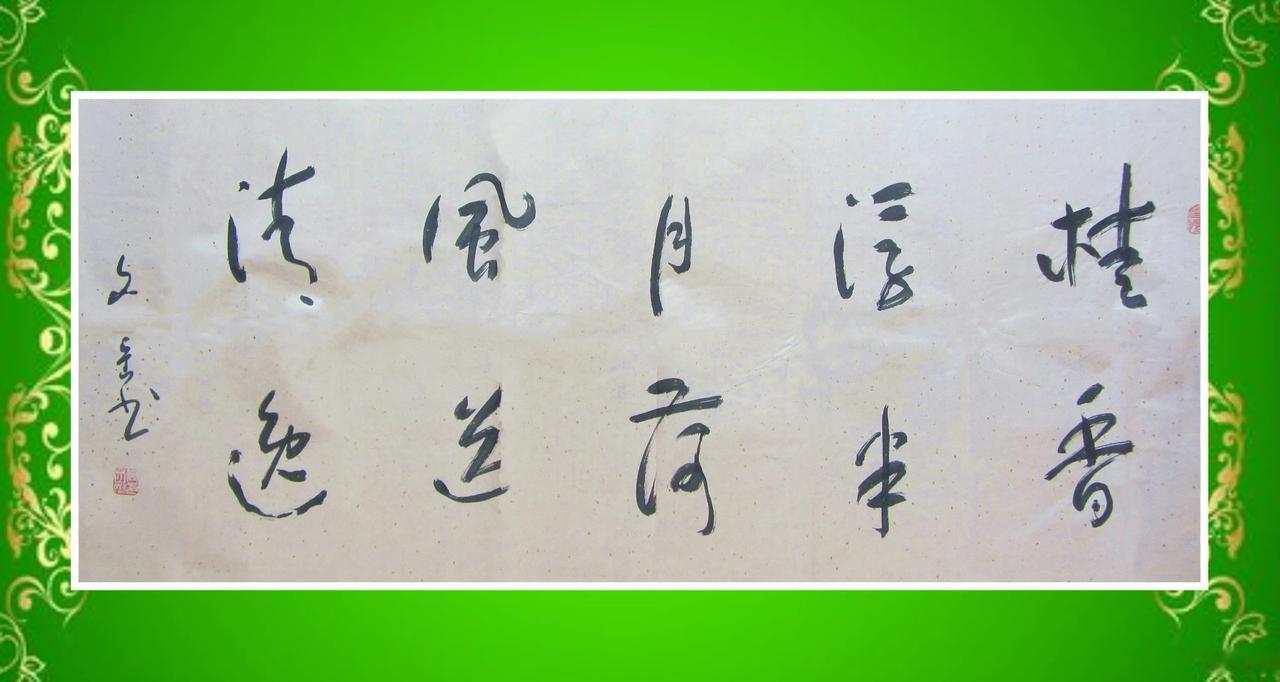 桂香
浮半
月荷
風送
清逸
文书